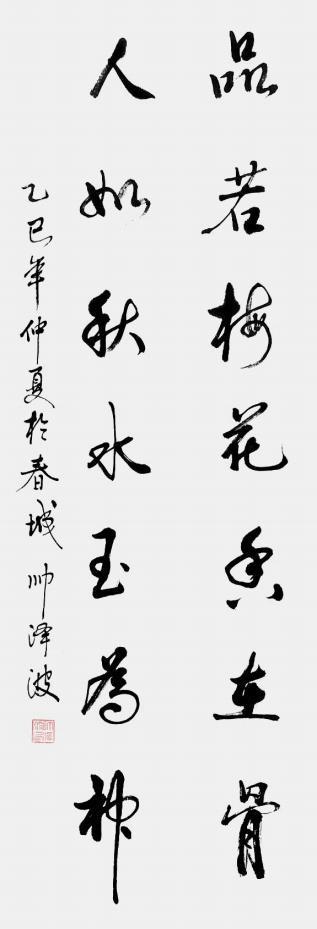 品若梅花香在骨
人如秋水玉為神
乙巳年仲夏於春城 帅泽波